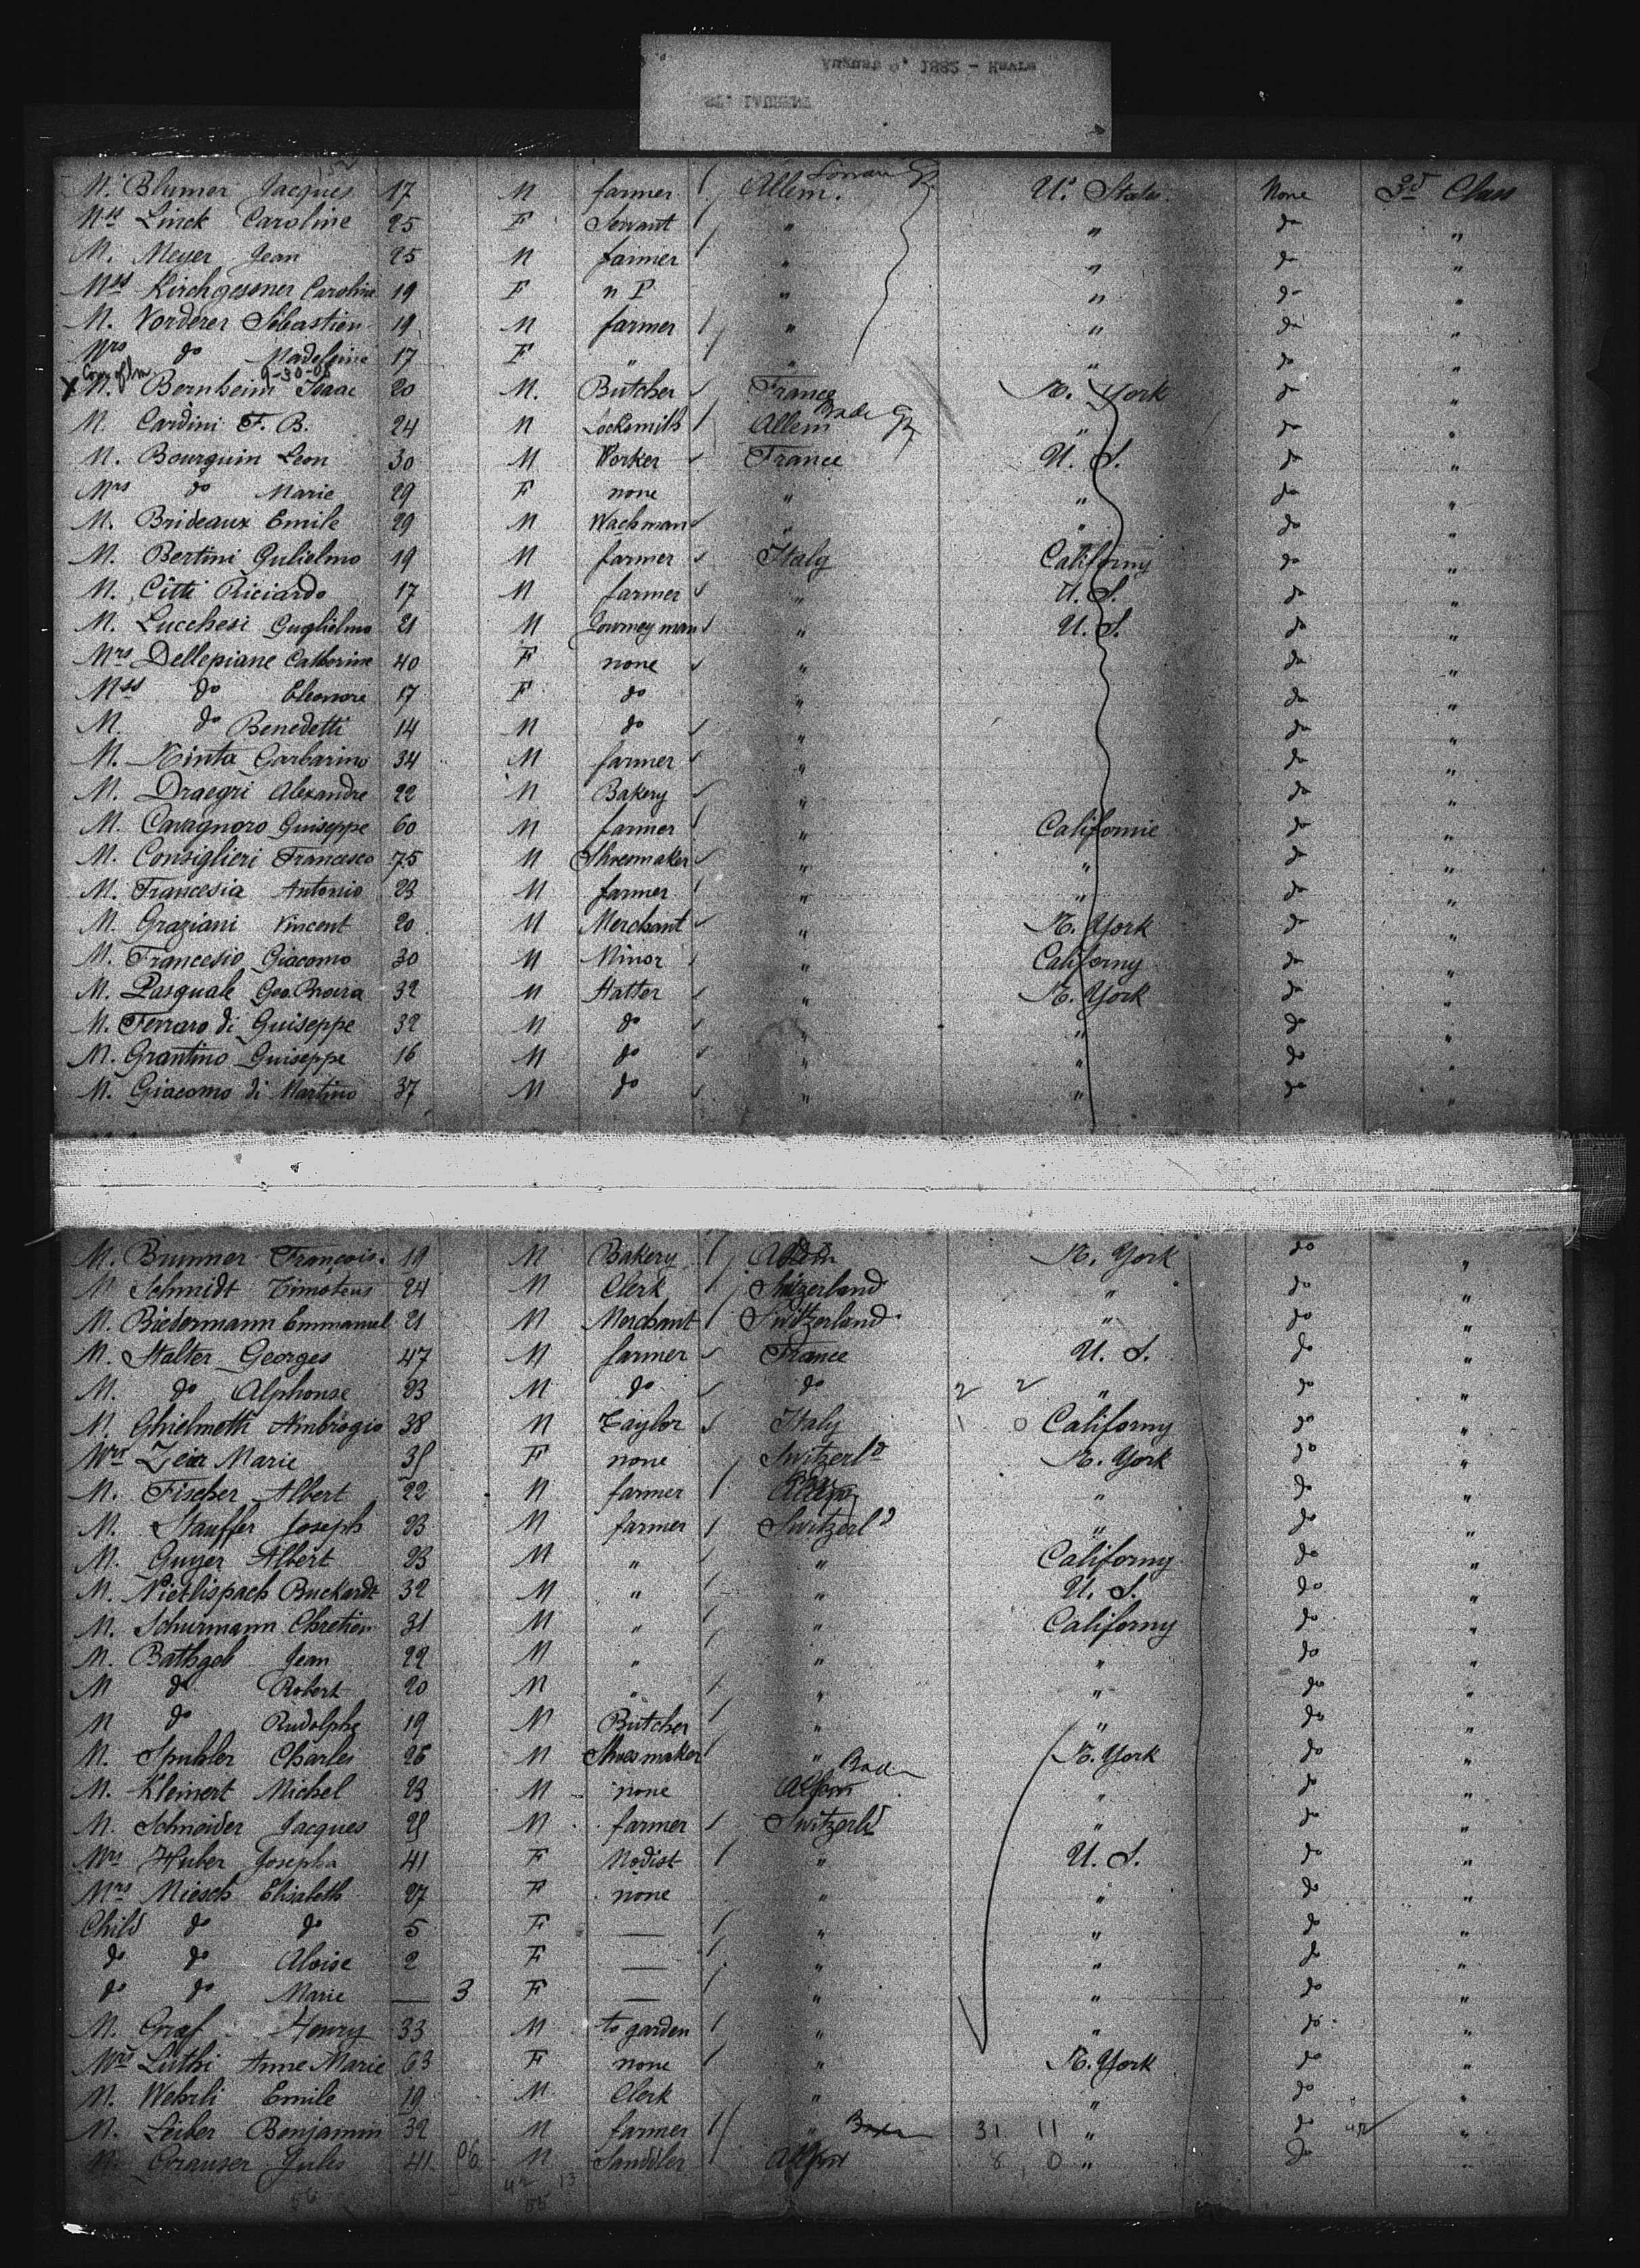 August 9, 1882 - Havre
ST. LAURENT
M. Blumer Jacques 17 M farmer / Allem. U. States. None 3d Class
Mss Linck Caroline 25 F Servant / " " do "
M. Meyer Jean 25 M farmer / " " do "
Mss Kirchgessner Caroline 19 F n P " " do "
M. Vorderer Sébastien 19 M farmer / " " do "
Mrs do Madeleine 17 F " / " " do "
9-30-08
X M. Bernheim Isaac 20 M. Butcher ✓ France N. York do "
M. Cardini F. B. 24 M Locksmith / Allem Bade " do "
M. Bourguin Leon 30 M Worker ✓ France U. S. do "
Mrs do Marie 29 F none " " do "
M. Brideaux Emile 29 M Wachman ✓ " " do "
M. Bertini Gulielmo 19 M farmer ✓ Italy Californy do "
M. Citti Riciardo 17 M farmer ✓ " U. S. do "
M. Lucchesi Guglielmo 21 M Journey man ✓ " U. S. do "
Mrs Dellepiane Catherine 40 F none ✓ " do "
Mss do Eleonore 17 F do " do "
M. do Benedetti 14 M do ✓ " do "
M. Ninta Garbarino 34 M farmer ✓ " do "
M. Draegri Alexandre 22 M Bakery ✓ " do "
M. Cavagnoro Guiseppe 60 M farmer / " Californie do "
M. Consiglieri Francesco 75 M Shoesmaker ✓ " " do "
M. Francesia Antonio 23 M farmer / " " do "
M. Graziani Vincent 20 M Merchant ✓ " N. York do "
M. Francesio Giacomo 30 M Minor / " Californy do "
M. Pasquale Geo. 32 M Hatter ✓ " N. York do "
M. Ferraro di Guiseppe 32 M do ✓ " " do "
M. Grantino Guiseppe 16 M do ✓ " " do "
M. Giacomo di Martino 37 M do ✓ " " do "
M. Brunner François. 19 M Bakery / N. York do "
M Schmidt Timoteus 24 M Clerk / Switzerland " do "
M. Biedermann Emmanuel 21 M Merchant / Switzerland " do "
M. Stalter Georges 47 M farmer ✓ France U. S. do "
M. do Alphonse 23 M do ✓ do 2 2 " do "
M. Ghielmetti Ambrogio 38 M Taylor ✓ Italy 1 0 Californy do "
Mrs Zeir Marie 35 F none Switzerld N. York do "
M. Fischer Albert 22 M farmer / " do "
M. Stauffer Joseph 23 M farmer / Switzerld " do "
M. Guyer Albert 23 M " / " Californy do "
M. Nietlispach Buckardt 32 M " / " U. S. do "
M. Schurmann Chretien 31 M " / " Californy do "
M. Bathgeb Jean 22 M " / " " do "
M do Robert 20 M " / " " do "
M do Rudolphe 19 M Butcher / " " do "
M. Spuhler Charles 26 M Shoesmaker / " N. York do "
M. Kleinert Michel 23 M none Baden " do "
M. Schneider Jacques 25 M farmer / Switzerld " do "
Mrs Huber Josepha 41 F Modist / " U. S. do "
Mrs Miesch Elisabeth 27 F none " " do "
Child do do 5 F — / " " do "
do do Aloise 2 F — / " " do "
do do Marie — 3 F — / " " do "
M. Graf Henry 33 M to garden / " " do "
Mrs Lüthi Anne Marie 63 F none / " N. York do "
M. Wehrli Emile 19 M Clerk " " do "
M. Leiber Benjamin 32 M farmer / " Baden 31 11 " do "
M. Grauser Jules 41 06 M Sanddler / 8 0 " do "